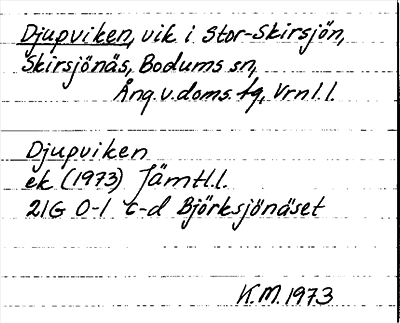 Djupviken, vik i Stor-Skirsjön,
Skirsjönäs, Bodums sn,
Ång. v. doms. fg, Vrnl. l.
Djupviken
ek (1973) Jämtl. l.
21G 0-1 c-d Björksjönäset
K.M. 1973